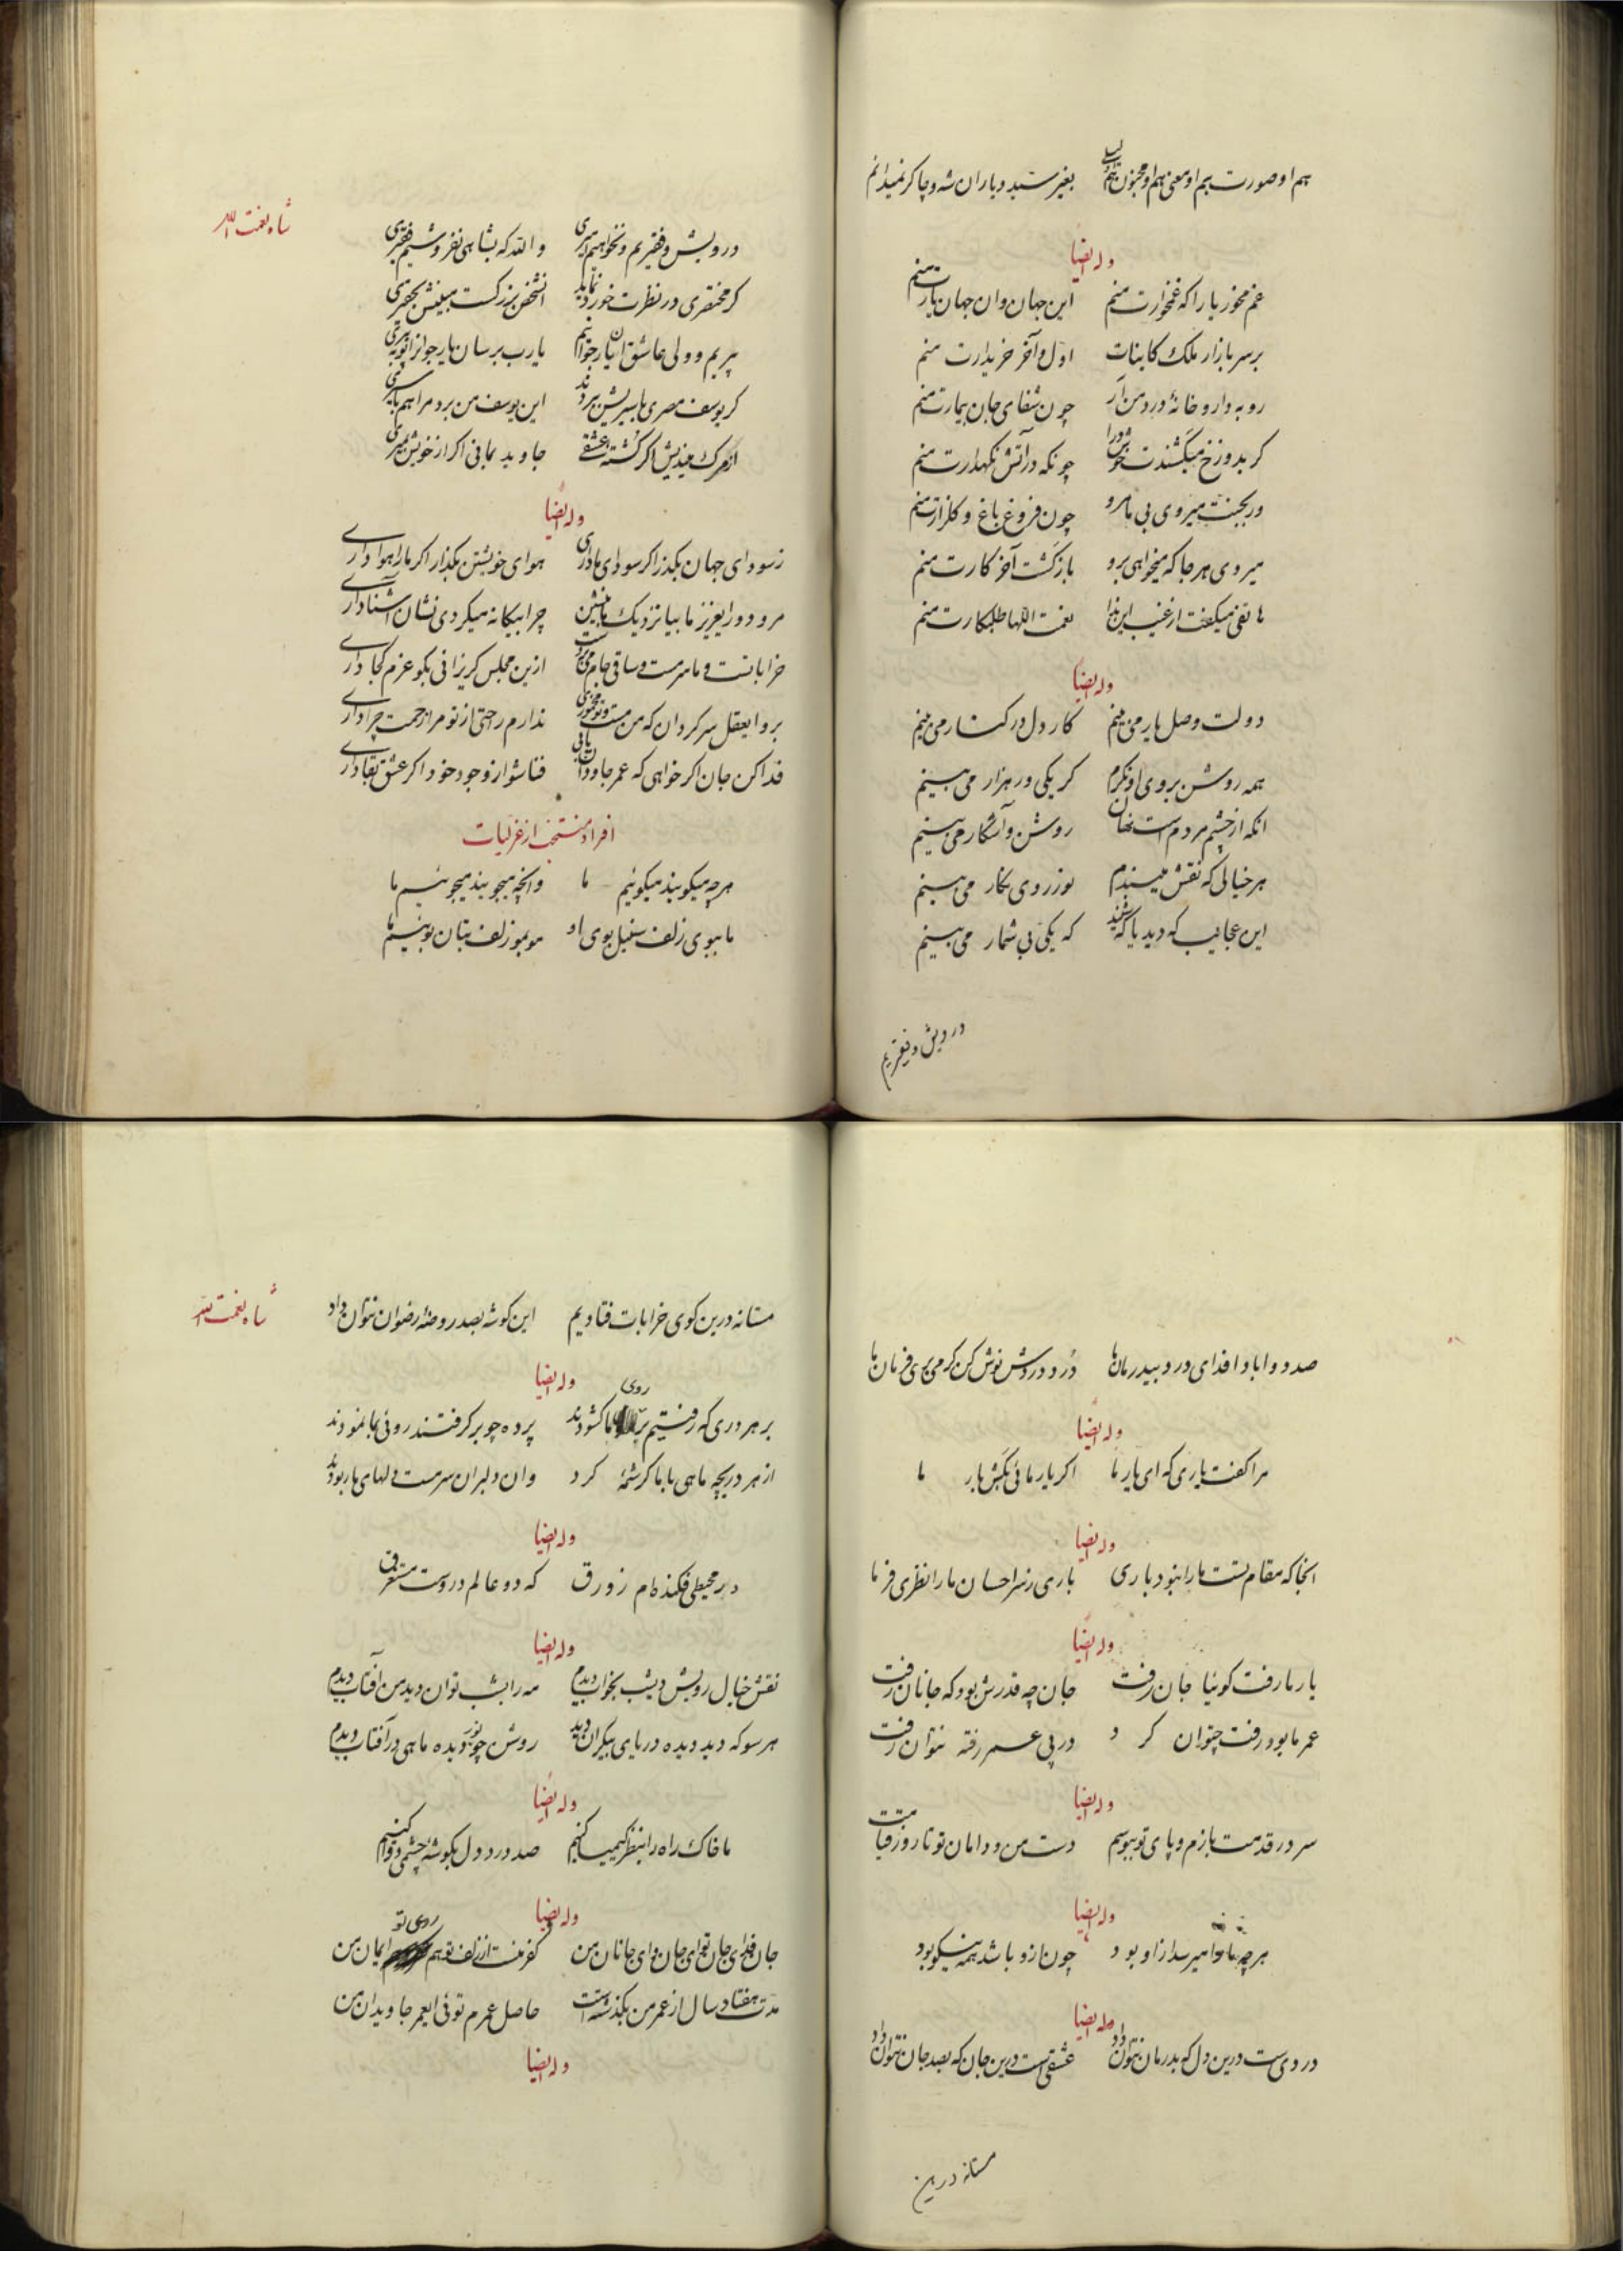 هم او صورت هم او معنی هم او مجنون هم او لیلی بغیر سید و یاران شه و چاکر نمیدانم
وله ایضا
غم مخور یارا که غمخوارت منم این جهان و ان جهان یارت منم
بر سر بازار ملک کاینات اول و آخر خریدارت منم
رو به داروخانهٔ درد من آر چون شفای جان بیمارت منم
کر بدوزخ میکشندت خوش درا چونکه در آتش نکهدارت منم
ور بجنت میروی بی ما مرو چون فروغ باغ و کلزارت منم
میروی هر جا که میخواهی برو بازکشت آخر کارت منم
هاتفی میکفت از غیب این ندا نعمت اللها طلبکارت منم
وله ایضا
دولت وصل یار می بینم کار دل در کنار می بینم
همه روشن بروی او نکرم کر یکی ور هزار می بینم
انکه از چشم مردم است نهان روشن و آشکار می بینم
هر خیالی که نقش میبندم نور روی نکار می بینم
این عجایب که دید یا که شنید که یکی بی شمار می بینم
درویش و فقریم
شاه نعمت الله
درویش و فقیریم و نخواهیم امیری و الله که بشاهی نفروشیم فقیری
کر مختصری در نظرت خورد نماید انشخص بزرکست مبینش بحقیری
پیریم و ولی عاشق ان یار جوانیم یارب برسان یار جوانرا تو به پیری
کر یوسف مصری باسیریش ببردند این یوسف من برد مرا هم باسیری
از مرک میندیش اکر کشته عشقی جاوید بمانی اکر از خویش بمیری
وله ایضا
ز سودای جهان بکذر اکر سودای ما داری هوای خویشتن بکذار اکر ما را هوا داری
مرو دور ایعزیز ما بیا نزدیک ما بنشین چرا بیکانه میکردی نشان آشنا داری
خراباتست و ما سرمست و ساقی جام می بر دست ازین مجلس کریزانی بکو عزم کجا داری
برو ایعقل سرکردان که من مست و تو مخموری ندارم رحتی از تو مرا زحمت چرا داری
فدا کن جان اکر خواهی که عمر جاودان یابی فنا شو از وجود خود اکر عشق بقا داری
افراد منتخب از غزلیات
هرچه میکویند میکوئیم ما وانچه میجویند میجوئیم ما
ما ببوی زلف سنبل بوی او مو بمو زلف بتان بوئیم ما
صد دوا بادا فدای درد بیدرمان ما دُرد دردش نوش کن کر می بری فرمان ما
وله ایضا
مرا کفت یاری که ای یار ما اکر یار مائی بکش بار ما
وله ایضا
انجا که مقام تست ما را نبود باری باری ز سر احسان ما را نظری فرما
وله ایضا
یار ما رفت کوئیا جان رفت جان چه قدرش بود که جانان رفت
عمر ما بود رفت چتوان کرد در پی عمر رفته نتوان رفت
وله ایضا
سر در قدمت بازم و پای تو ببوسم دست من و دامان تو تا روز قیامت
وله ایضا
هرچه ما را میرسد از او بود چون ازو باشد همه نیکو بود
وله ایضا
دردی ست درین دل که بدرمان نتوان داد عشقی ست درین جان که بصد جان نتوان داد
مستانه درین
شاه نعمت الله
مستانه درین کوی خرابات فتادیم این کوشه بصد روضهٔ رضوان نتوان داد
وله ایضا
بر هر دری که رفتیم بر روی ما کشودند پرده چو بر کرفتند روئی بما نمودند
از هر دریچه ماهی با ما کرشمهٔ کرد وان دلبران سرمست دلهای ما ربودند
وله ایضا
در محیطی فکنده ام زورق که دو عالم دروست مستغرق
وله ایضا
نقش خیال رویش دیشب بخواب دیدم مه را بشب توان دید من آفتاب دیدم
هر سو که دید دیده دریای بیکران دید روشن چو نور دیده ماهی در آفتاب دیدم
وله ایضا
ما خاک راه را بنظر کیمیا کنیم صد درد دل بکوشهٔ چشمی دوا کنیم
وله ایضا
جان فدای جان تو ای جان و ای جانان من کفر منست از زلف تو هم روی تو ایمان من
مدت هفتاد سال از عمر من بکذشته است حاصل عمرم توئی ایعمر جاویدان من
وله ایضا